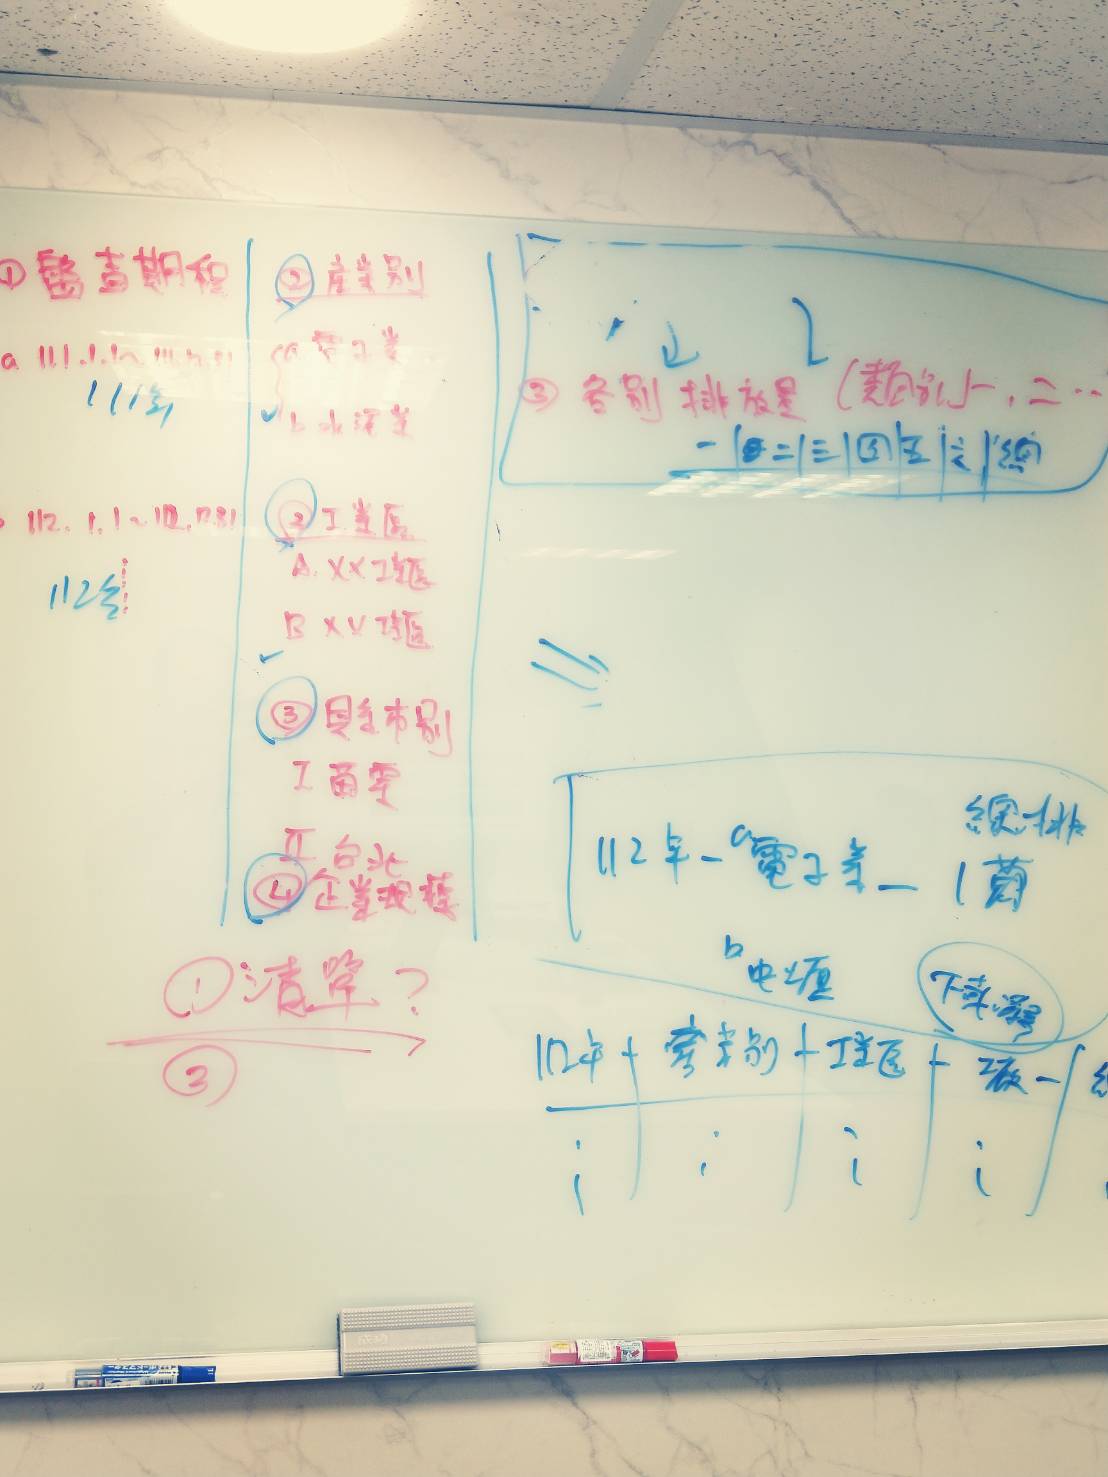 ① 盤查期程
a 111.1.1~111.12.31
111年
112.1.1~112.12.31
112年
② 產業別
a 電子業
b 水泥業
② 工業區
A. XX工業區
B XX工業區
③ 縣市別
I 苗栗
II 台北
④ 企業規模
① 清單?
③
③ 各別排放量 (類別一, 二…
一|二|三|四|五|六|總
112年-a電子業-
總排
1萬
b
下載
112年+產業別+工業區